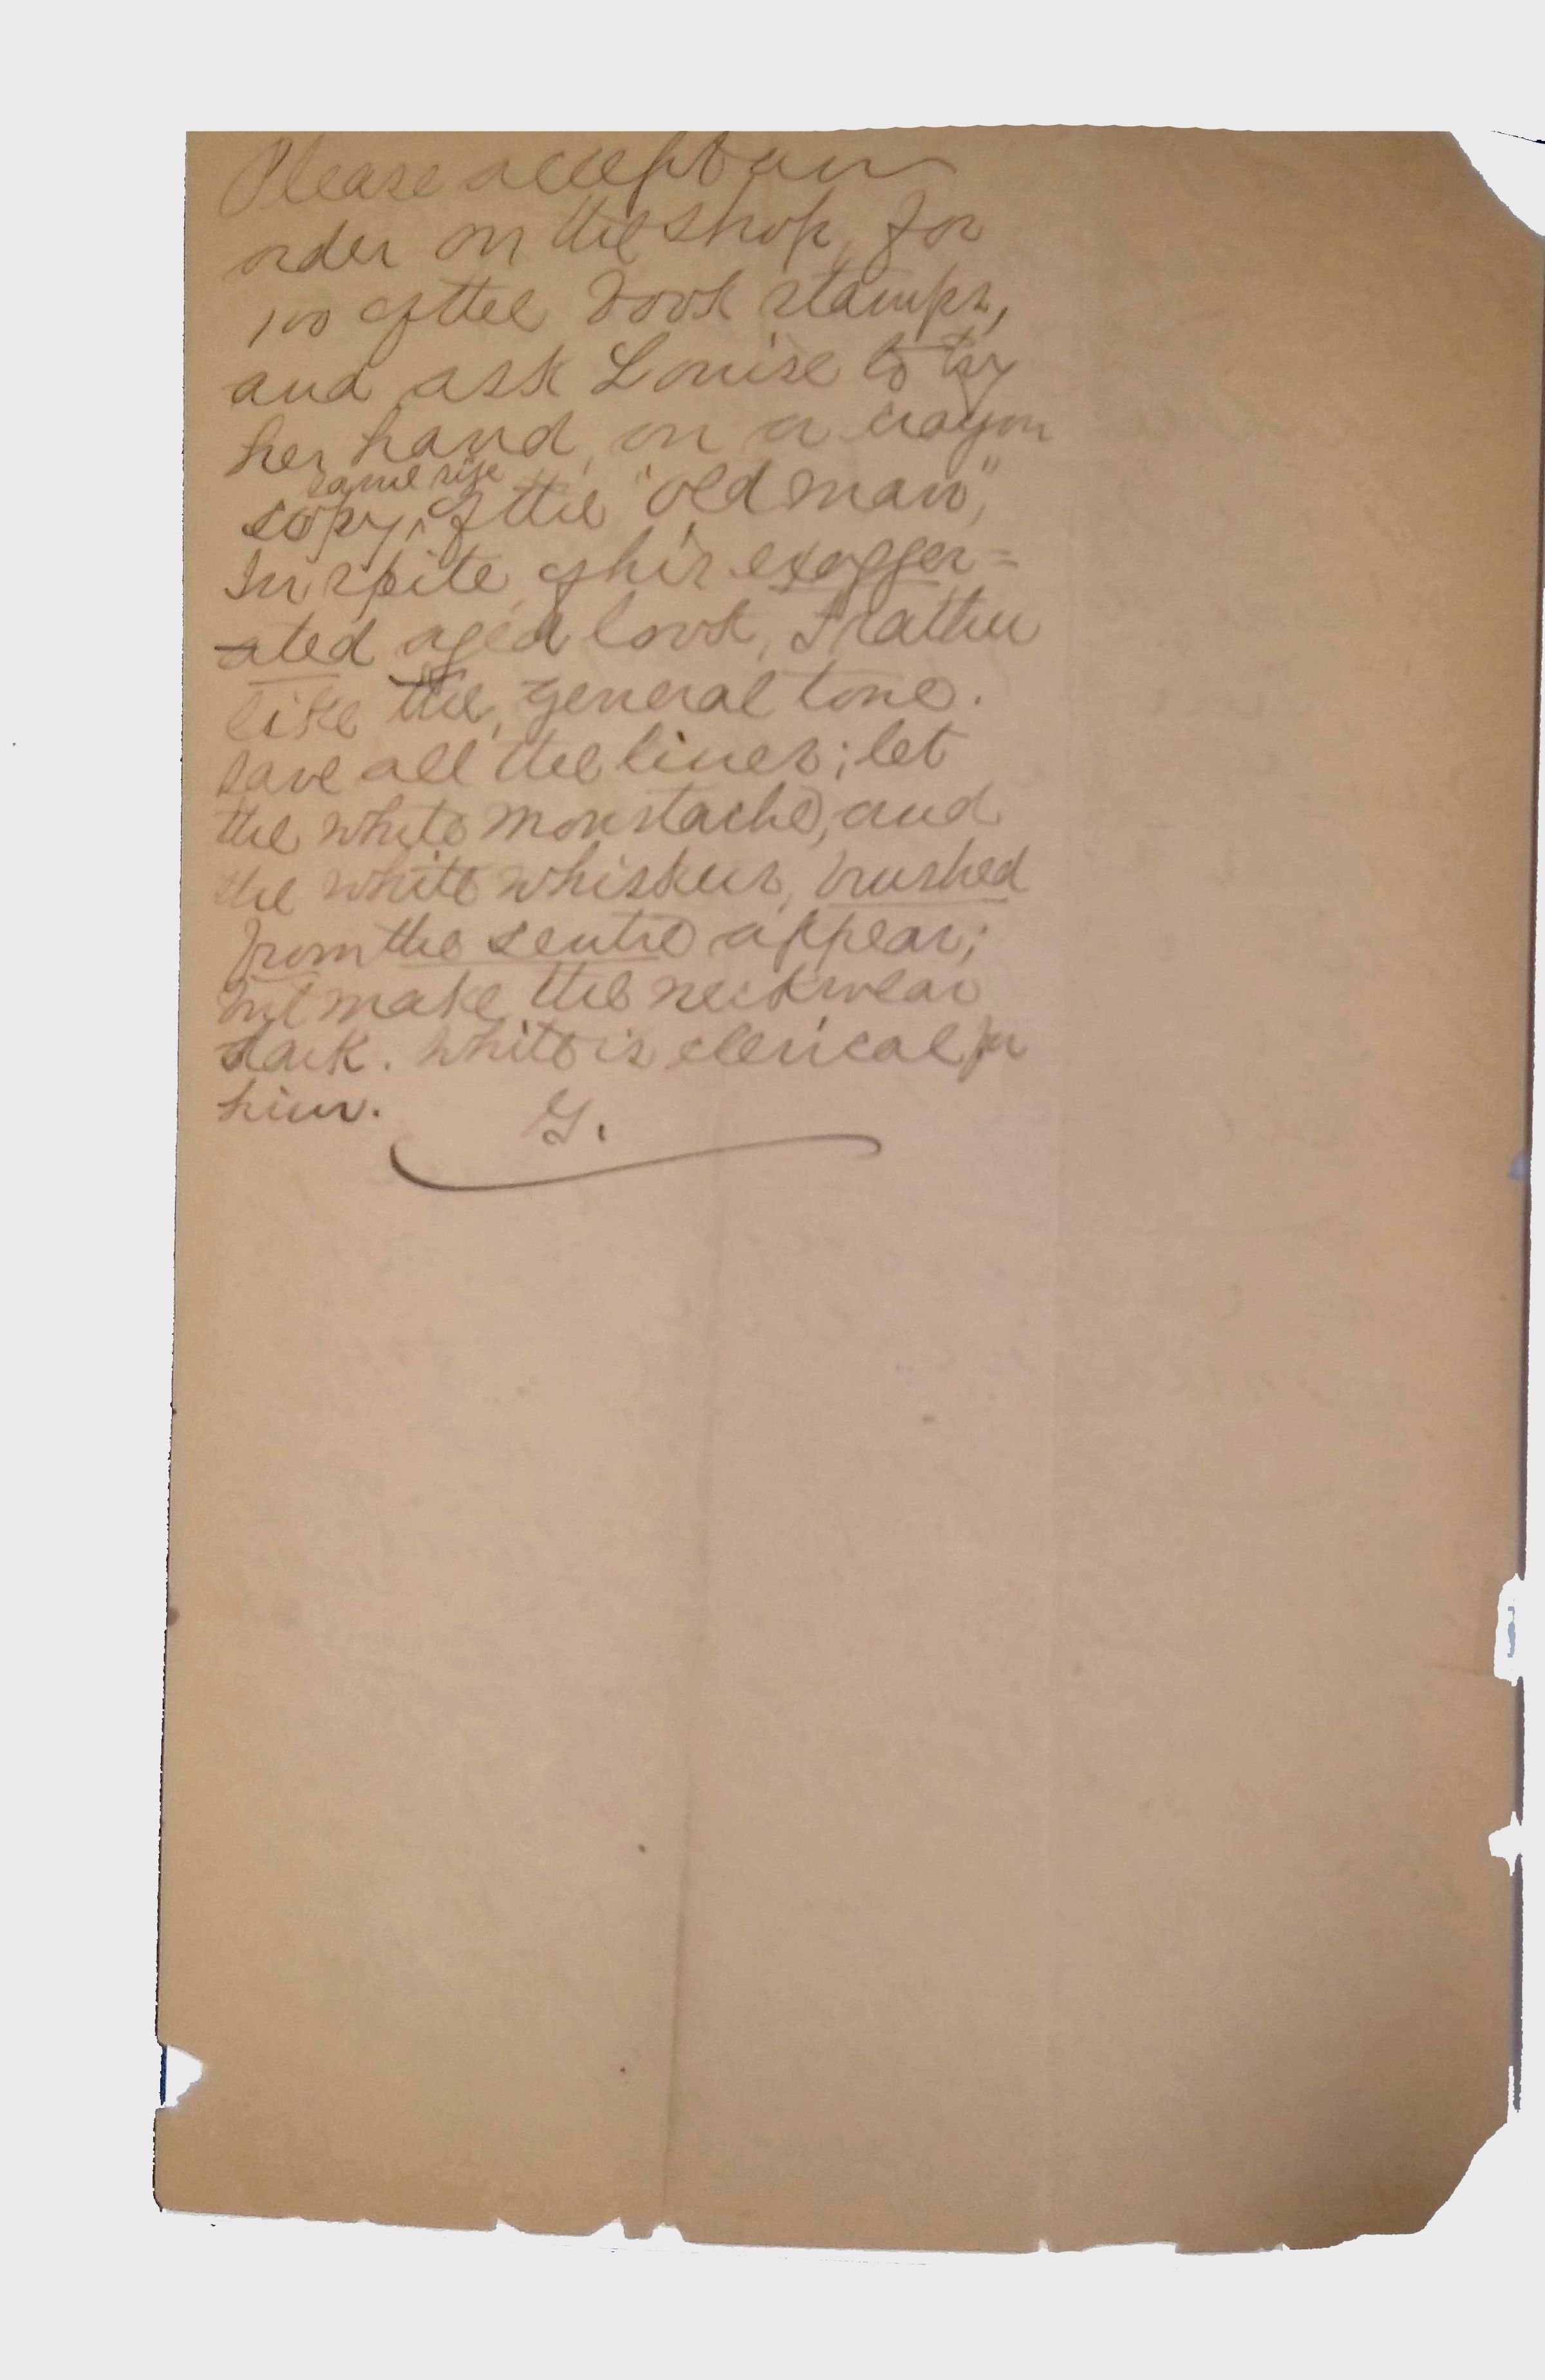 Please accept an
order on the shop, for
100 of the book stamps,
and ask Louise to try
her hand, on a crayon
same size
copy, of the "old man",
In spite of his exagger=
ated aged look, I rather
like the, general tone.
Save all the lines; let
the white moustache, and
the white whiskers, brushed
from the centre appear;
but make the neckwear
dark. White is clerical for
him. G.